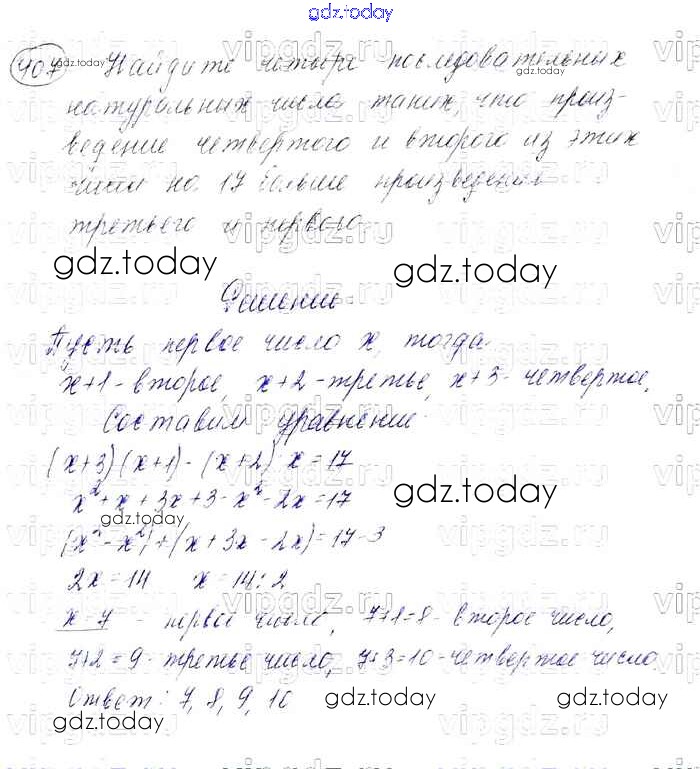 gdz.today
407 Найдите четыре последовательных
натуральных числа таких, что произ-
ведение четвертого и второго из этих
чисел на 17 больше произведения
третьего и первого.
gdz.today gdz.today
Решение.
Пусть первое число x, тогда
x+1 - второе, x+2 - третье, x+3 - четвертое.
Составим уравнение
(x+3)(x+1) - (x+2) x = 17
x²+x+3x+3-x²-2x=17
gdz.today gdz.today
(x²-x²)+(x+3x-2x)=17-3
2x=14 x=14:2
x=7 - первое число, 7+1=8 - второе число,
7+2=9 - третье число, 7+3=10 - четвертое число
Ответ: 7, 8, 9, 10
gdz.today gdz.today gdz.today